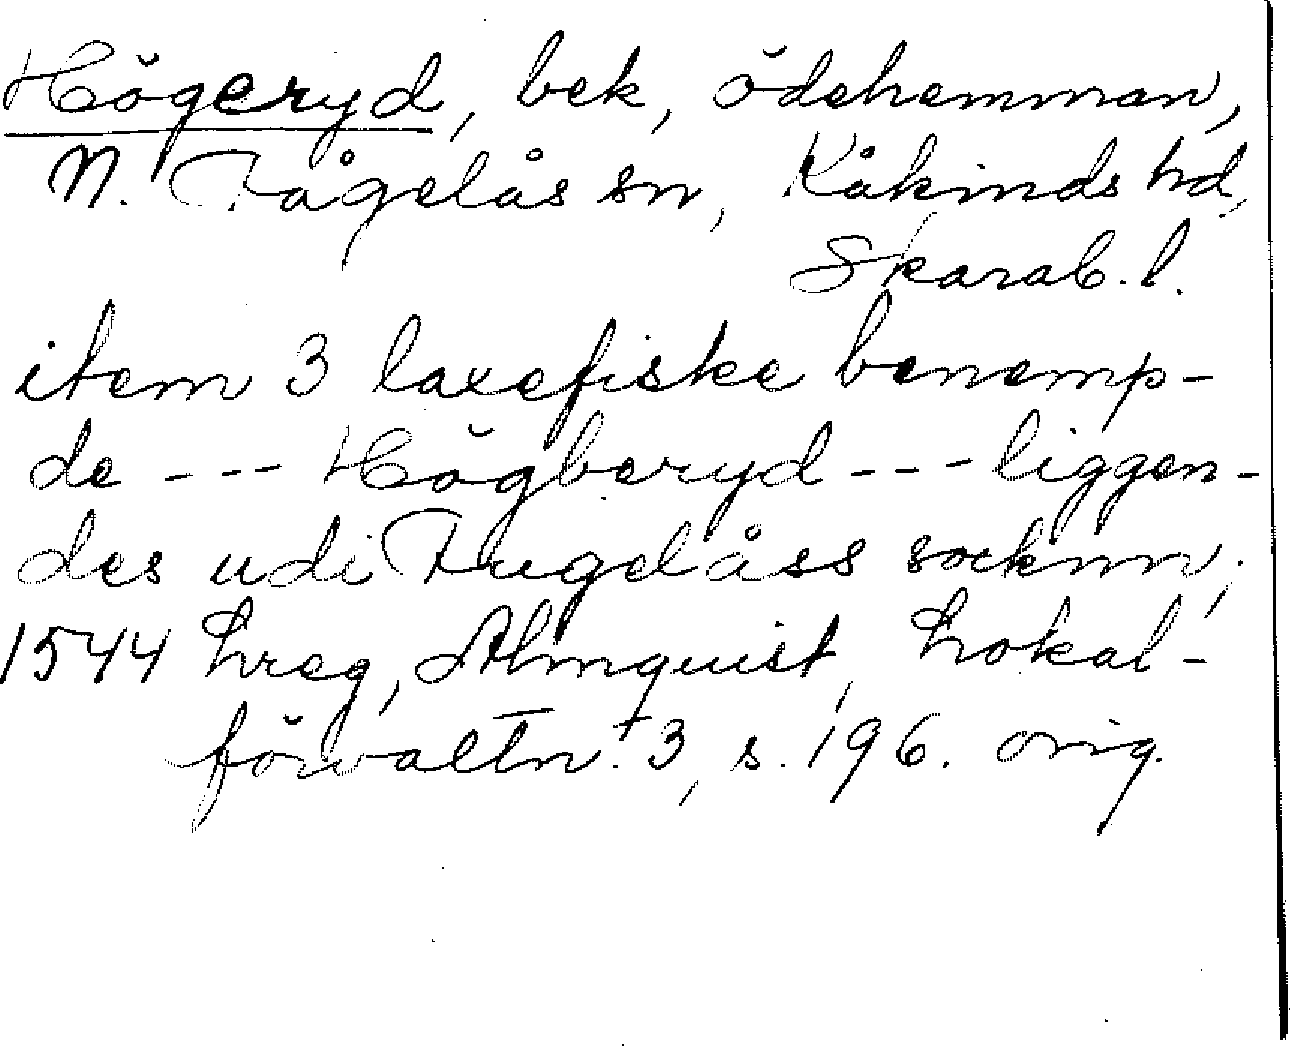 Högeryd, bek, ödehemman,
N. Fågelås sn, Kåkinds hd,
Skarab. l.
item 3 laxefiske benemp-
de --- Högberyd --- liggen-
des udi Fugelåss socknn,
1544 hreg, Almquist, Lokal-
förvaltn. 3, s. 196. orig.